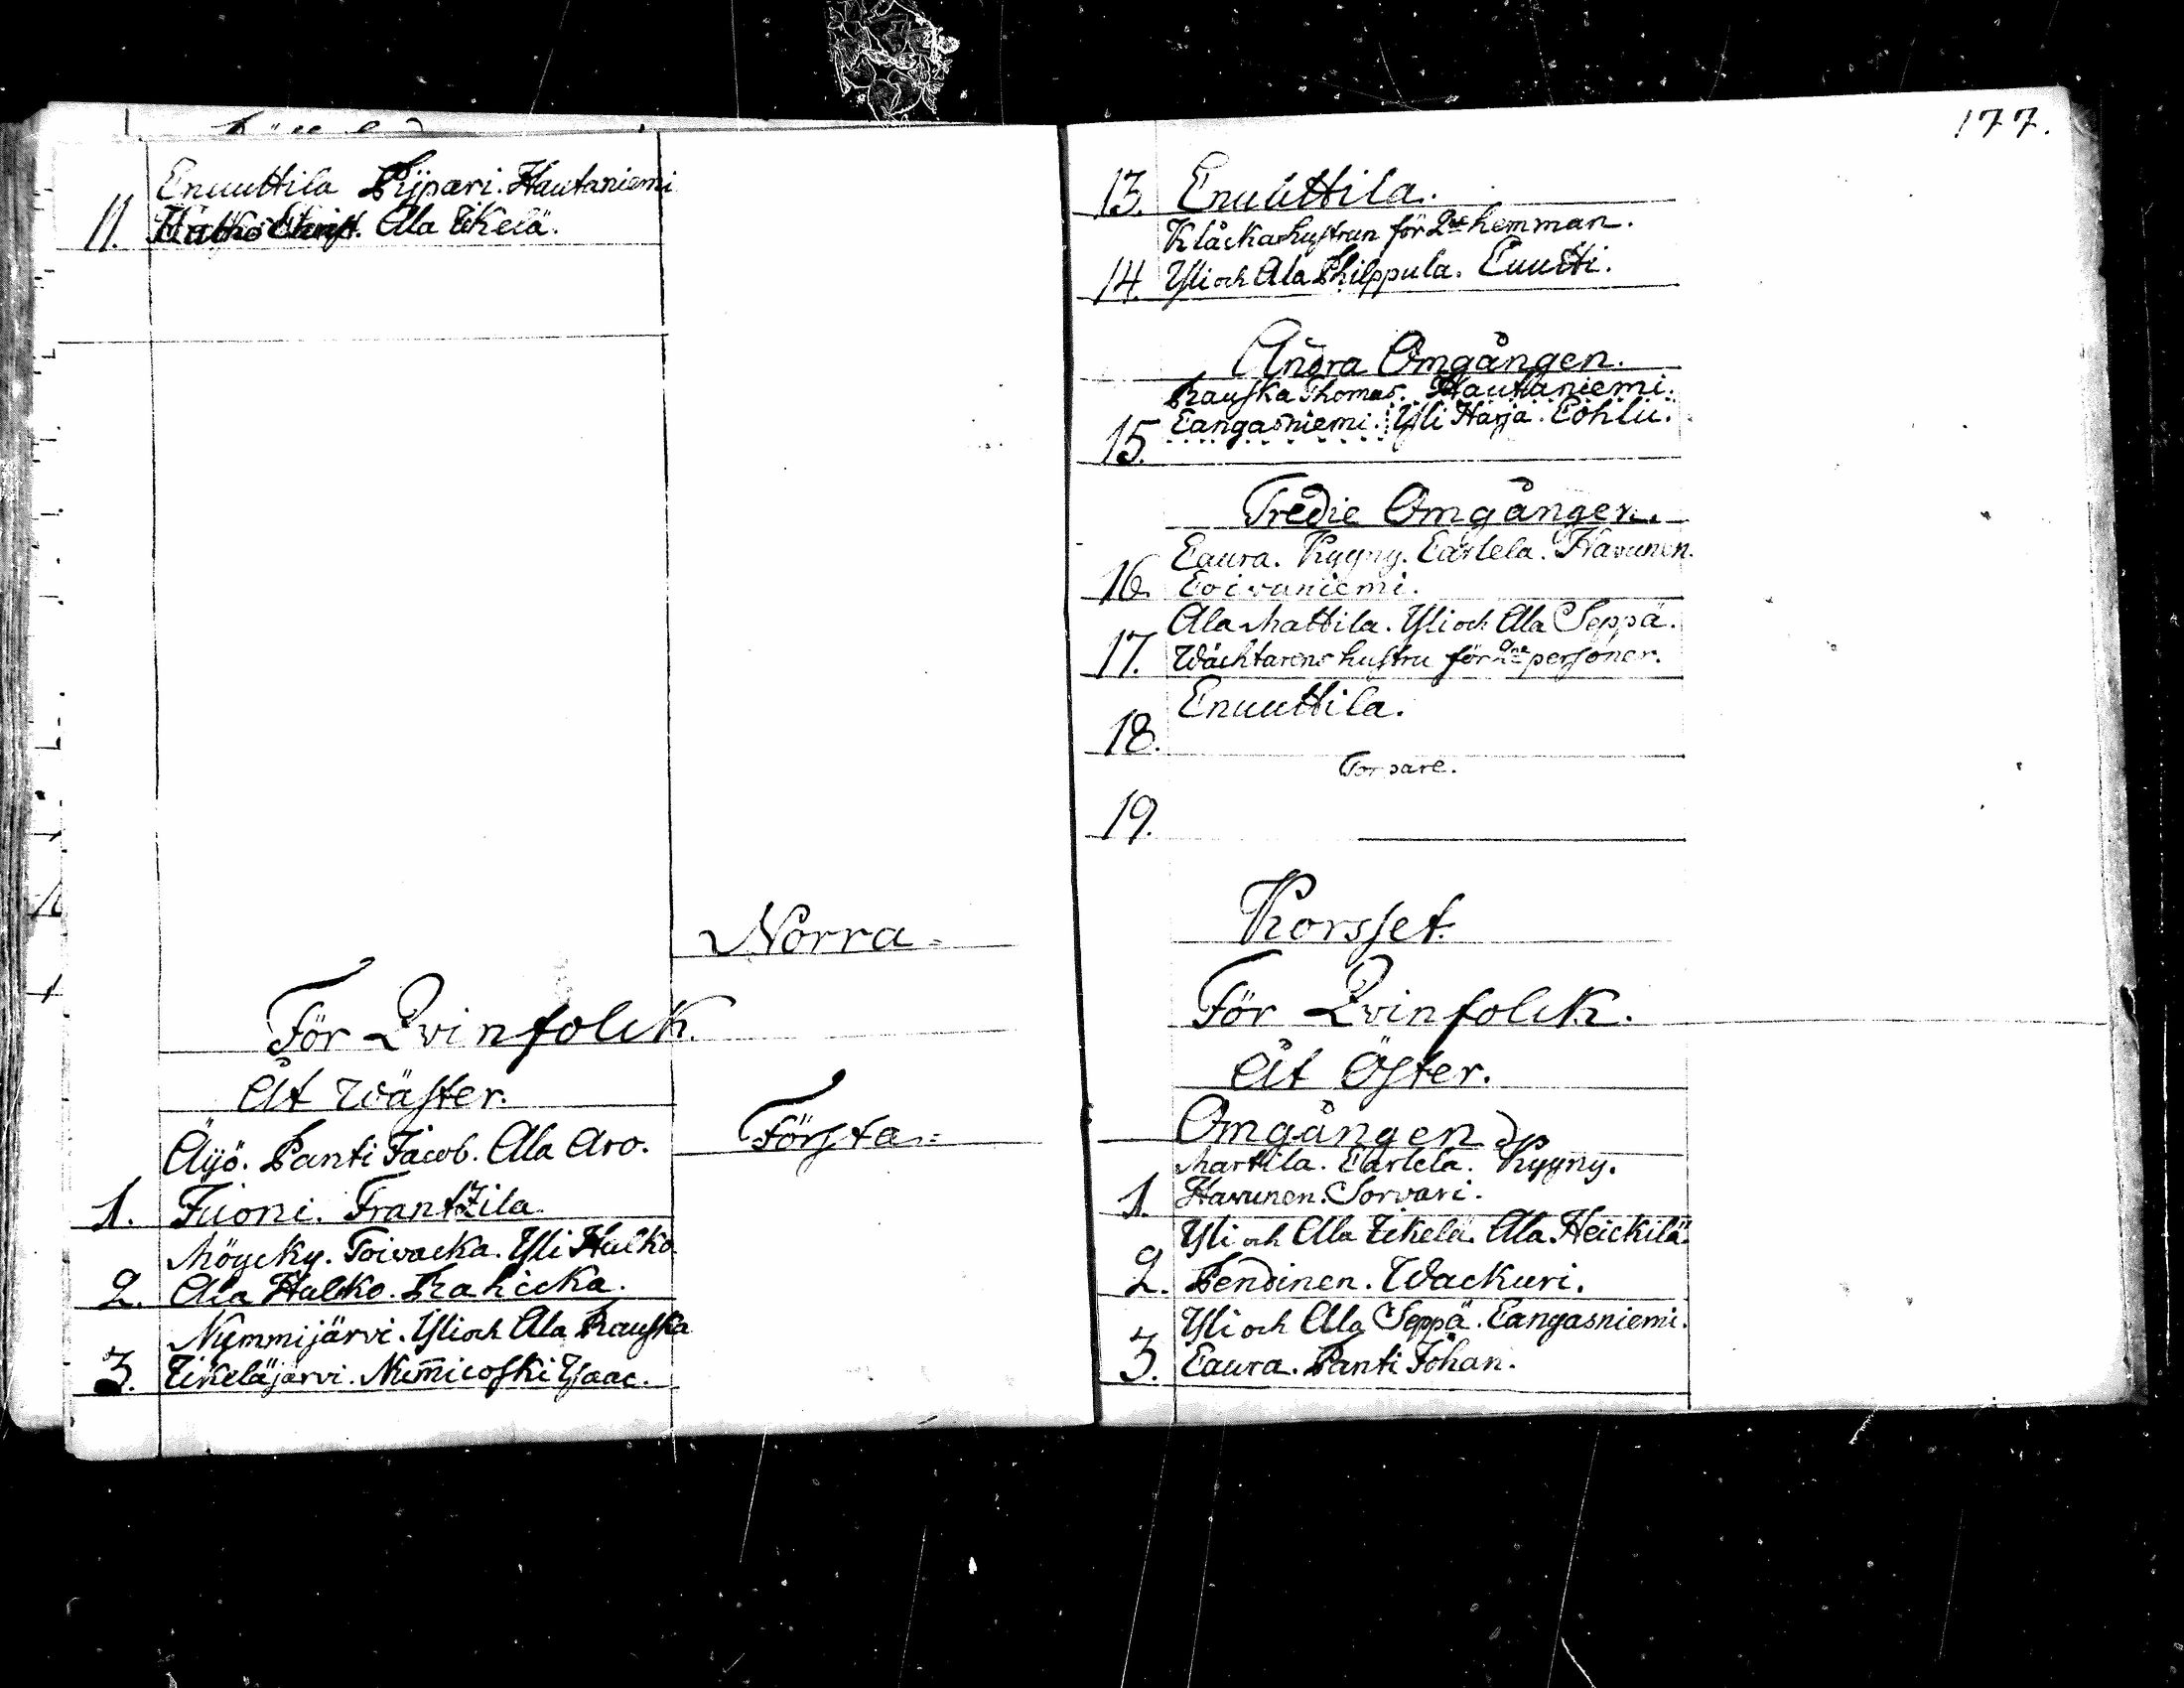 Enuuttila Pijpari. Hautaniemi
11. Ala Eikelä.
Norra=
För Qvinfolck.
Åt Wäster.
Första=
Äijö. Panti Jacob. Ala Aro.
1. Fuoni. Frantzila
Möycky. Toivacka. Yli Hulko
2. Ala Hulko. Rahicka.
Nummijärvi. Yli och Ala Rauska
3. Eikeläjärvi. Num̄icoski Ysaac.
177.
13. Enuuttila.
Klåckarhustrun för 2ne hemman.
14. Yli och Ala Philppula. Luutti.
Andra Omgången.
Rauska Thomas. Hautaniemi.
15. Langasniemi. Yli Harja. Lohlu.
Tredie Omgången.
Laura. Kyyny. Larlela. Havunen.
16. Loivaniemi.
Ala Mattila. Yli och Ala Seppä.
17. Wächtarens hustru för 2ne personer.
Enuuttila.
18.
Torpare.
19.
Korsset.
För Qvinfolck.
Åt Öster.
Omgången
Marttila. Larlela. Kyyny.
1. Havunen. Sorvari.
Yli och Ala Eikelä. Ala Heickilä.
2. Pendinen. Wackuri.
Yli och Ala Seppä. Langasniemi.
3. Laura. Panti Johan.